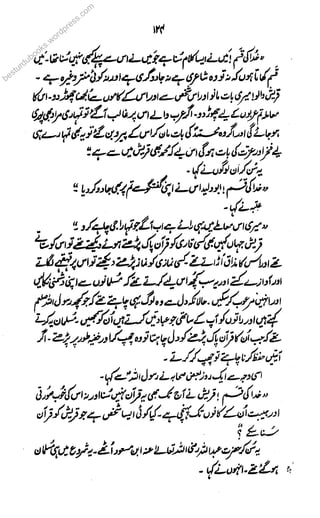 ۱۲۳
"خدا کی قسم! میں نے ایسا کلام سنا ہے جو میں نے اس سے پہلے کبھی نہیں سنا تھا۔ میں
قسم کھاتا ہوں کہ نہ تو وہ شاعری ہے نہ جادوگری ہے اور نہ کوئی منتر وغیرہ ہے۔
قریش والو! میری بات مانو اور اس شخص سے اور اس کے کاموں سے الجھنا چھوڑ دو۔ اس کا
معاملہ تم عربوں کے لیے چھوڑ دو۔ اگر عرب والے اس پر غالب آ گئے تو تمہاری مراد بھی پوری
ہو جائے گی اور اگر وہ محمد کی بات مان کر اس کے پیرو بن گئے تو یہ بھی تمہارے ہی
لیے فخر اور عزت کی بات ہو گی اس لیے کہ محمد بھی قریش میں سے ہے"
یہ سن کر ان لوگوں نے کہا۔
"خدا کی قسم! ابو ولید اس نے اپنی گفتگو سے تم پر بھی جادو کر دیا"
عتبہ نے کہا۔
"میری اس معاملے میں یہی رائے ہے اب آگے جو تمہارا جی چاہے کرو"
قریش جہاں کہیں بھی کسی قاری کو قرآن پاک پڑھتے ہوئے دیکھتے تھے تو اس کو ستاتے
تھے اور اس کا مذاق اڑاتے تھے کسی نمازی کو نماز پڑھتے دیکھتے تو اس پر قہقہے لگاتے
اور آوازے کستے تھے اور یہ سب کچھ اس لیے کرتے تھے کہ مسلمانوں سے اپنی دشمنی نکالیں
اور انہیں مرعوب کر سکیں۔ حالانکہ دل سے وہ لوگ یہی چاہتے تھے کہ جو کچھ رسول اللہ صلعم
کہتے ہیں اور راتوں کو آپ کے ساتھی جو عبادتیں کرتے ہیں ان کو سمجھیں۔ مسلمان یہ کرتے
تھے کہ جب ان کا قرآن پاک پڑھنے کو دل چاہتا تو وہ چھپ کر اور خفیہ طور پر پڑھتے۔ اگر
آیتیں حفظ کرنا چاہتے تو چھپ کر کرتے۔
اسی وجہ سے ایک روز بعض صحابہ نے رسول اللہ سے کہا۔
"خدا کی قسم! قریش نے آج تک بھی یہ قرآن نہیں سنا اور نہ اس کی خوبصورتی
اور ہیبت ان کے کانوں تک پہنچی ہے۔ کیا کوئی ایسا شخص ہے جو قریش کو قرآن
سنائے؟
یہ سن کر حضرت عبد اللہ رضی اللہ تعالےٰ عنہ ابن مسعود اٹھے۔ یہ شروع میں ہی مسلمان
ہو گئے تھے۔ انہوں نے کہا۔
besturdubooks.wordpress.com